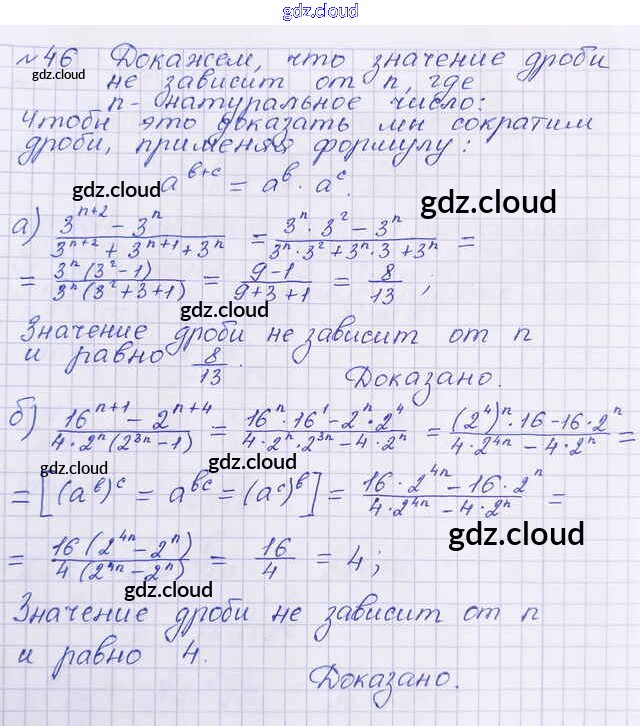 gdz.cloud
№46 Докажем, что значение дроби
gdz.cloud
не зависит от n, где
n - натуральное число:
Чтобы это доказать мы сократим
дроби, применяя формулу:
gdz.cloud
a^(b+c) = a^b · a^c.
gdz.cloud
а) (3^(n+2) - 3^n)/(3^(n+2) + 3^(n+1) + 3^n) = (3^n · 3^2 - 3^n)/(3^n · 3^2 + 3^n · 3 + 3^n) =
= (3^n (3^2 - 1))/(3^n (3^2 + 3 + 1)) = (9 - 1)/(9 + 3 + 1) = 8/13 ;
gdz.cloud
Значение дроби не зависит от n
и равно 8/13.
gdz.cloud
Доказано.
б) (16^(n+1) - 2^(n+4))/(4 · 2^n (2^(3n) - 1)) = (16^n · 16^1 - 2^n · 2^4)/(4 · 2^n · 2^(3n) - 4 · 2^n) = ((2^4)^n · 16 - 16 · 2^n)/(4 · 2^(4n) - 4 · 2^n) =
gdz.cloud
gdz.cloud
= [(a^b)^c = a^(bc) = (a^c)^b] = (16 · 2^(4n) - 16 · 2^n)/(4 · 2^(4n) - 4 · 2^n) =
gdz.cloud
= (16 (2^(4n) - 2^n))/(4 (2^(4n) - 2^n)) = 16/4 = 4;
gdz.cloud
Значение дроби не зависит от n
и равно 4.
gdz.cloud
Доказано.